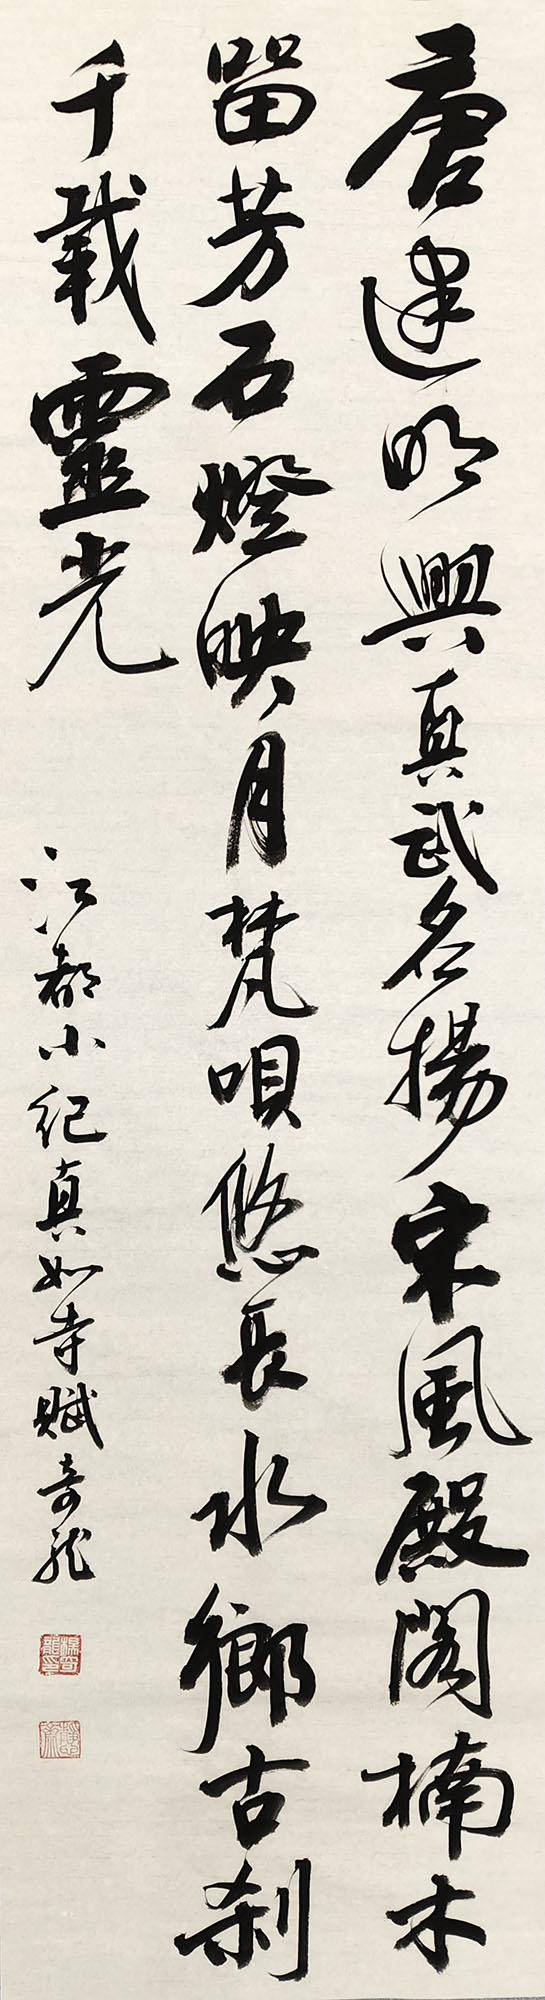 唐建明興真武名揚宋風殿閣楠木
留芳石燈映月梵唄悠長水鄉古剎
千載靈光
江都小紀真如寺賦奇龍